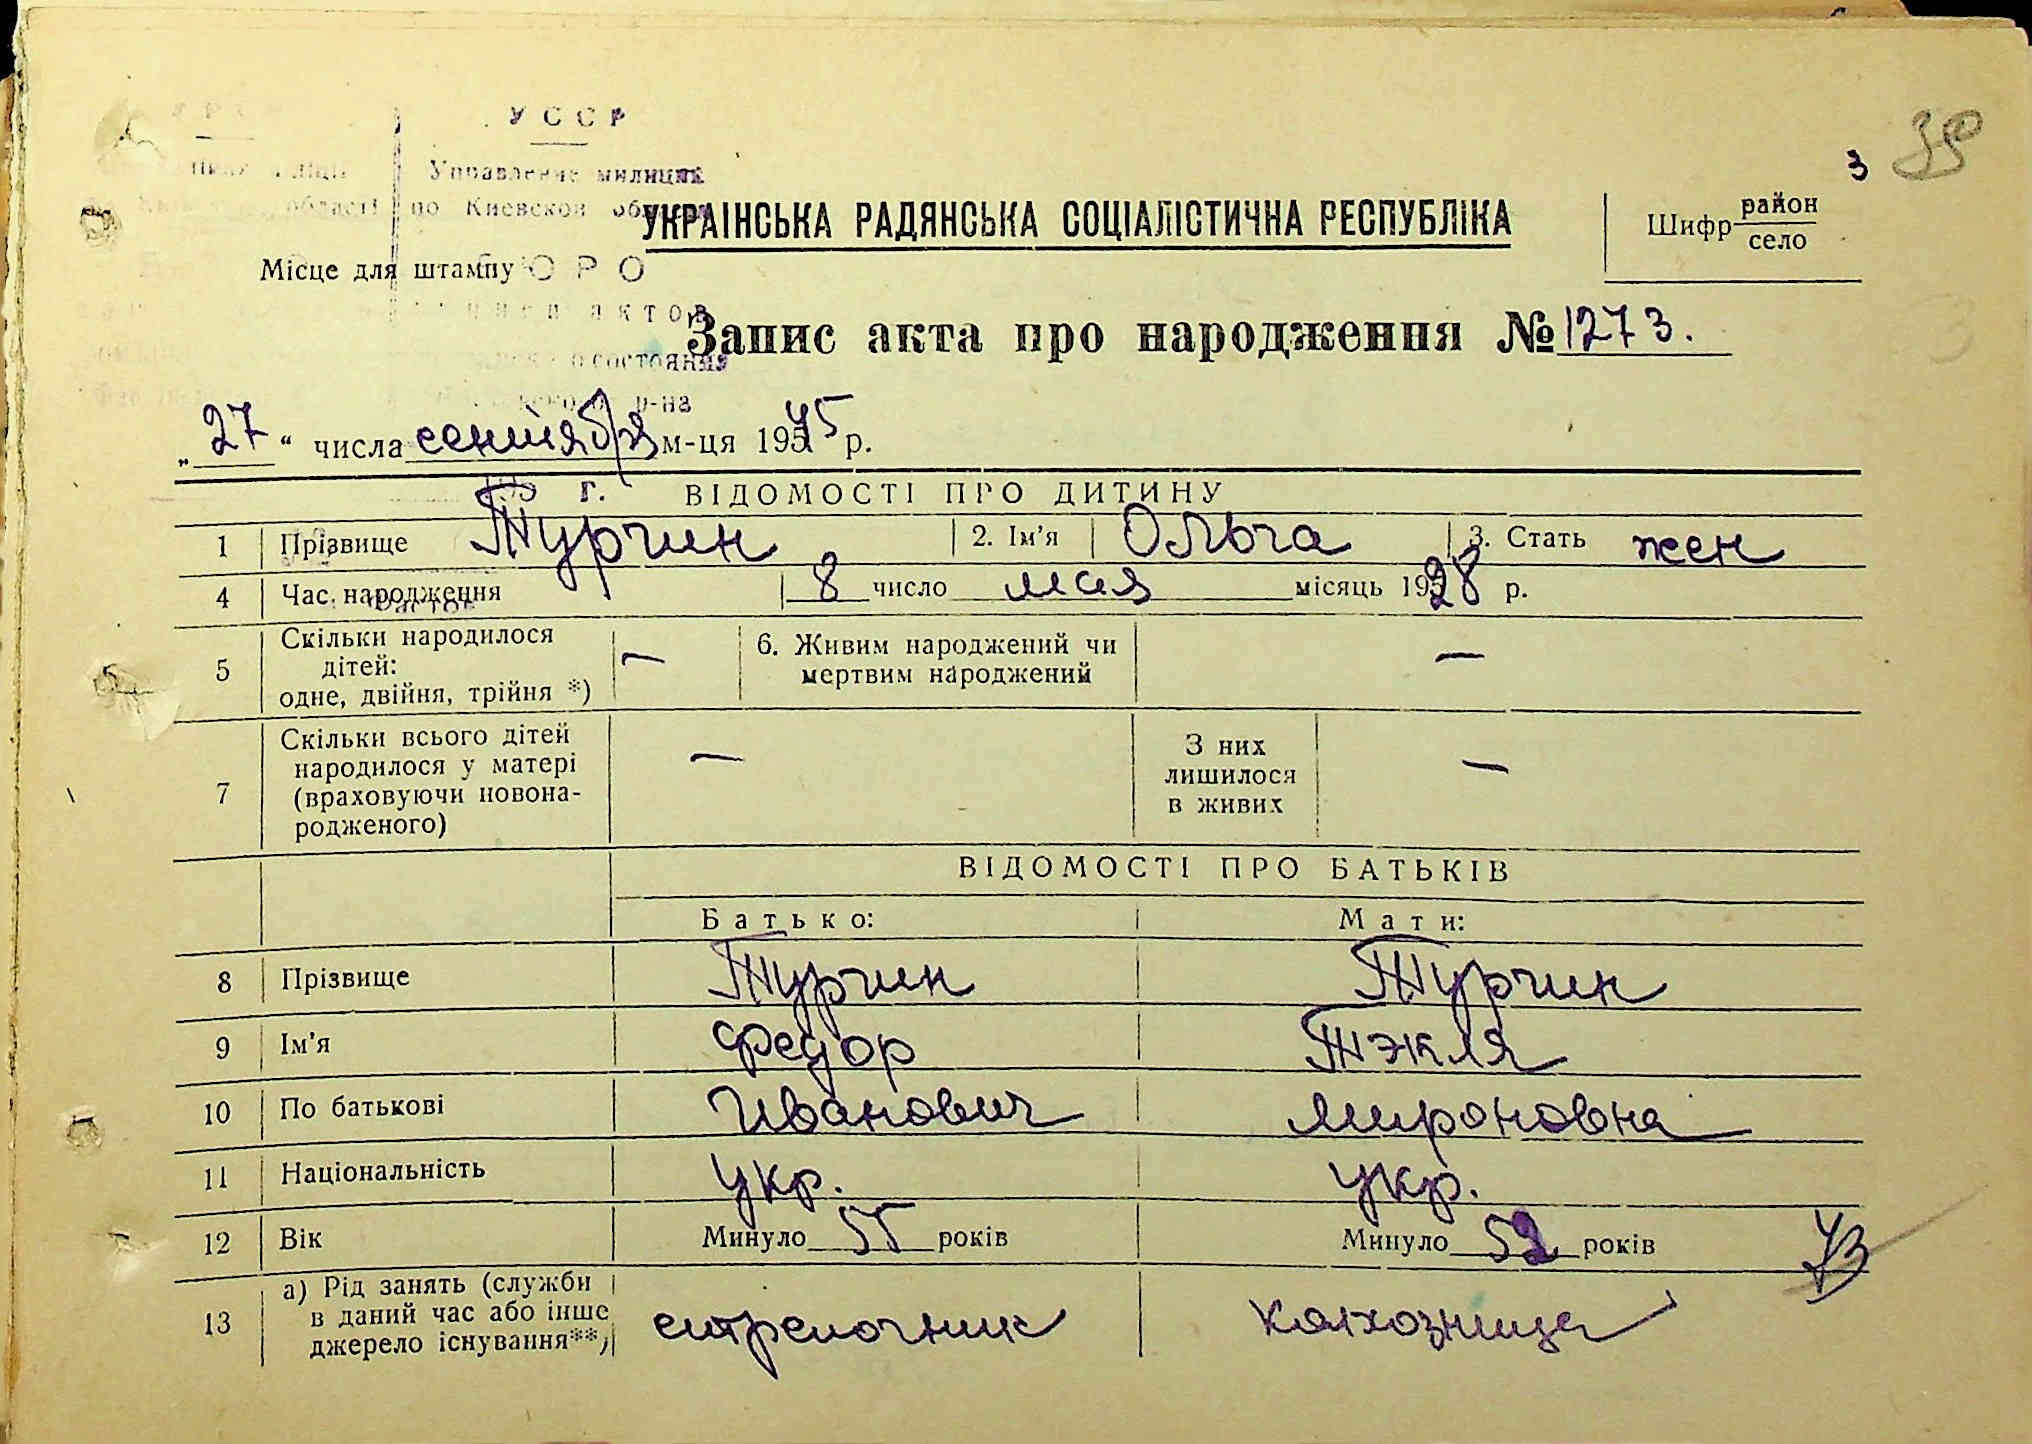 УССР
Управление милиции
області по Киевской
3 39
УКРАЇНСЬКА РАДЯНСЬКА СОЦІАЛІСТИЧНА РЕСПУБЛІКА
Шифр район село
Місце для штампу
актов
состояния
р-на
Запис акта про народження № 1273.
„27“ числа сентября м-ця 1945 р.
г. ВІДОМОСТІ ПРО ДИТИНУ
1 Прізвище Турчин 2. Ім'я Ольга 3. Стать жен
4 Час народження 8 число мая місяць 1928 р.
5 Скільки народилося дітей: одне, двійня, трійня *) — 6. Живим народжений чи мертвим народжений —
7 Скільки всього дітей народилося у матері (враховуючи новонародженого) — З них лишилося в живих —
ВІДОМОСТІ ПРО БАТЬКІВ
Батько: Мати:
8 Прізвище Турчин Турчин
9 Ім'я Федор Тэкля
10 По батькові Иванович Мироновна
11 Національність укр. укр.
12 Вік Минуло 55 років Минуло 52 років
13 а) Рід занять (служби в даний час або інше джерело існування**) стрелочник колхозница